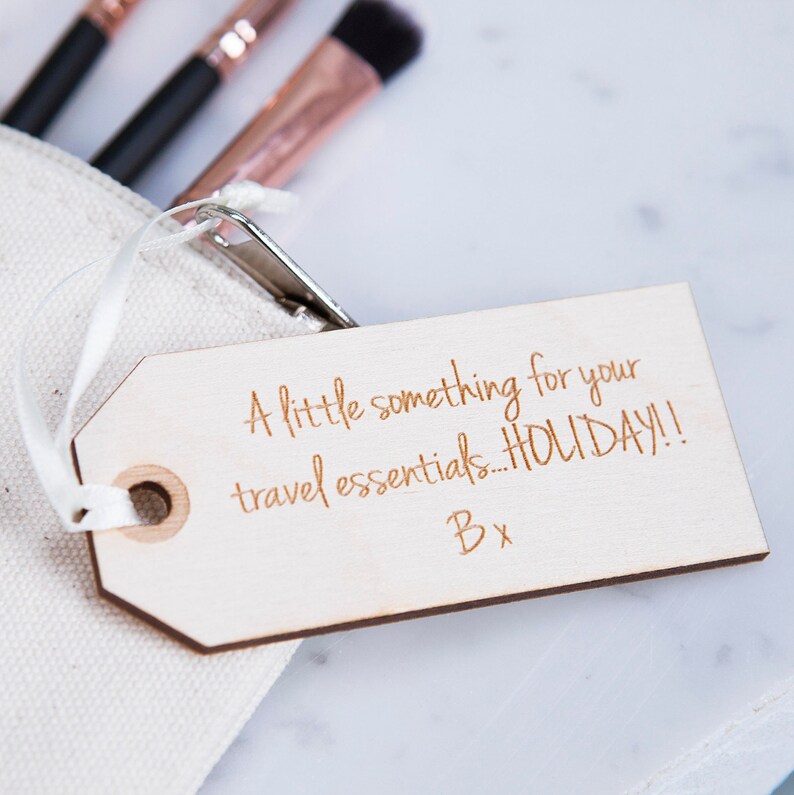 A little something for your
travel essentials...HOLIDAY!!
B x